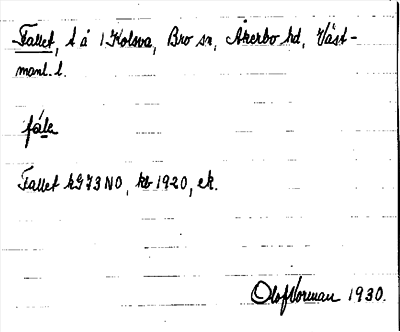 Fallet, t å 1 Kolsva, Bro sn, Åkerbo hd, Väst-
manl. l.
fále
Fallet kG73NO, kb 1920, ek.
Olof Norman 1930.